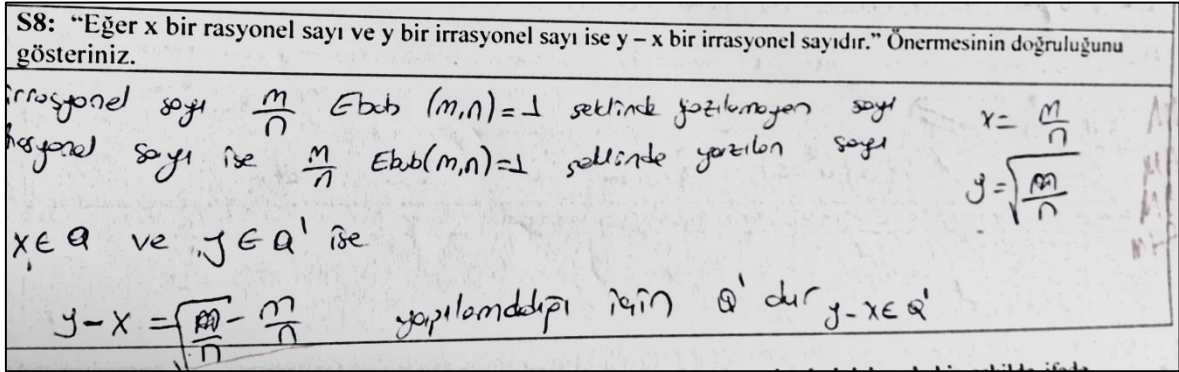 S8: “Eğer x bir rasyonel sayı ve y bir irrasyonel sayı ise y – x bir irrasyonel sayıdır.” Önermesinin doğruluğunu
gösteriniz.
irrasyonel sayı m/n Ebob (m,n)=1 şeklinde yazılamayan sayı
Rasyonel sayı ise m/n Ebob(m,n)=1 şeklinde yazılan sayı
x= m/n
y=√(m/n)
x∈Q ve y∈Q' ise
y-x = √(m/n) - m/n yapılamadığı için Q' dur y-x∈Q'